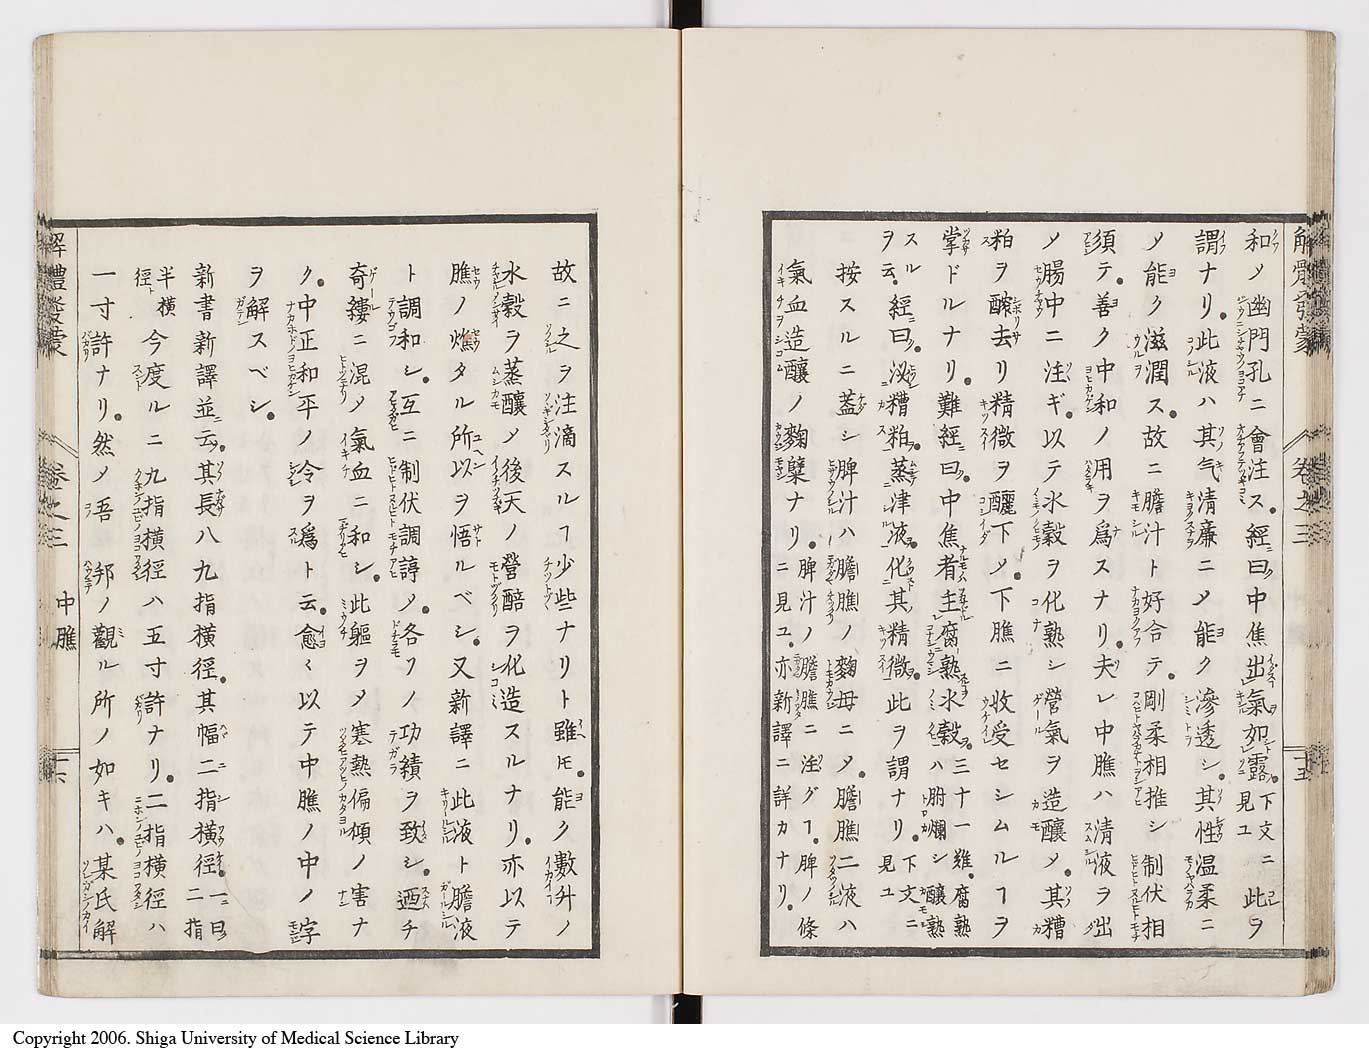 解體發蒙 卷之三 十五
和メ幽門孔ニ會注ス。經曰中焦出氣如露下文ニ見ユ此ヲ
謂ナリ。此液ハ其气清廉ニメ能ク滲透シ。其性温柔ニ
メ能ク滋潤ス。故ニ膽汁ト好合テ。剛柔相推シ制伏相
須テ。善ク中和ノ用ヲ爲スナリ。夫レ中膲ハ清液ヲ出
メ腸中ニ注ギ。以テ水穀ヲ化熟シ營氣ヲ造釀メ。其糟
粕ヲ醡去リ精微ヲ釃下メ。下膲ニ收受セシムルヿヲ
掌ドルナリ。難經曰。中焦者主腐熟水穀。三十一難。腐熟ハ腐爛シ釀熟
スルヲ云。經曰。泌糟粕。蒸津液。化其精微。此ヲ謂ナリ。下文ニ見ユ
按スルニ蓋シ脾汁ハ膽膲ノ麴母ニメ。膽膲二液ハ
氣血造釀ノ麴糵ナリ。脾汁ノ膽膲ニ注グヿ。脾ノ條ニ見ユ。亦新譯ニ詳カナリ。
故ニ之ヲ注滴スルヿ少些ナリト雖ㇳモ。能ク數升ノ
水穀ヲ蒸釀メ後天ノ營醅ヲ化造スルナリ。亦以テ
膲ノ燋タル所以ヲ悟ルベシ。又新譯ニ此液ト膽液
ト調和シ。互ニ制伏調諄メ。各フノ功績ヲ致シ。迺チ
奇縷ニ混メ氣血ニ和シ。此軀ヲメ寒熱偏傾ノ害ナ
ク。中正和平ノ令ヲ爲ト云。愈〱以テ中膲ノ中ノ字
ヲ解スベシ。
新書新譯並云。其長八九指橫徑。其幅二指橫徑。一ニ曰二指
半橫徑ト今度ルニ九指橫徑ハ五寸許ナリ。二指橫徑ハ
一寸許ナリ。然メ吾邦ノ觀ル所ノ如キハ。某氏解
解體發蒙 卷之三 中膲 十六
Copyright 2006. Shiga University of Medical Science Library